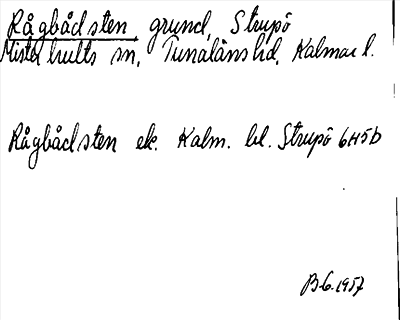 Rågbådsten, grund, Strupö
Misterhults sn, Tunaläns hd, Kalmar l.
Rågbådsten ek. Kalm. bl. Strupö 6H5D
B.G. 1957